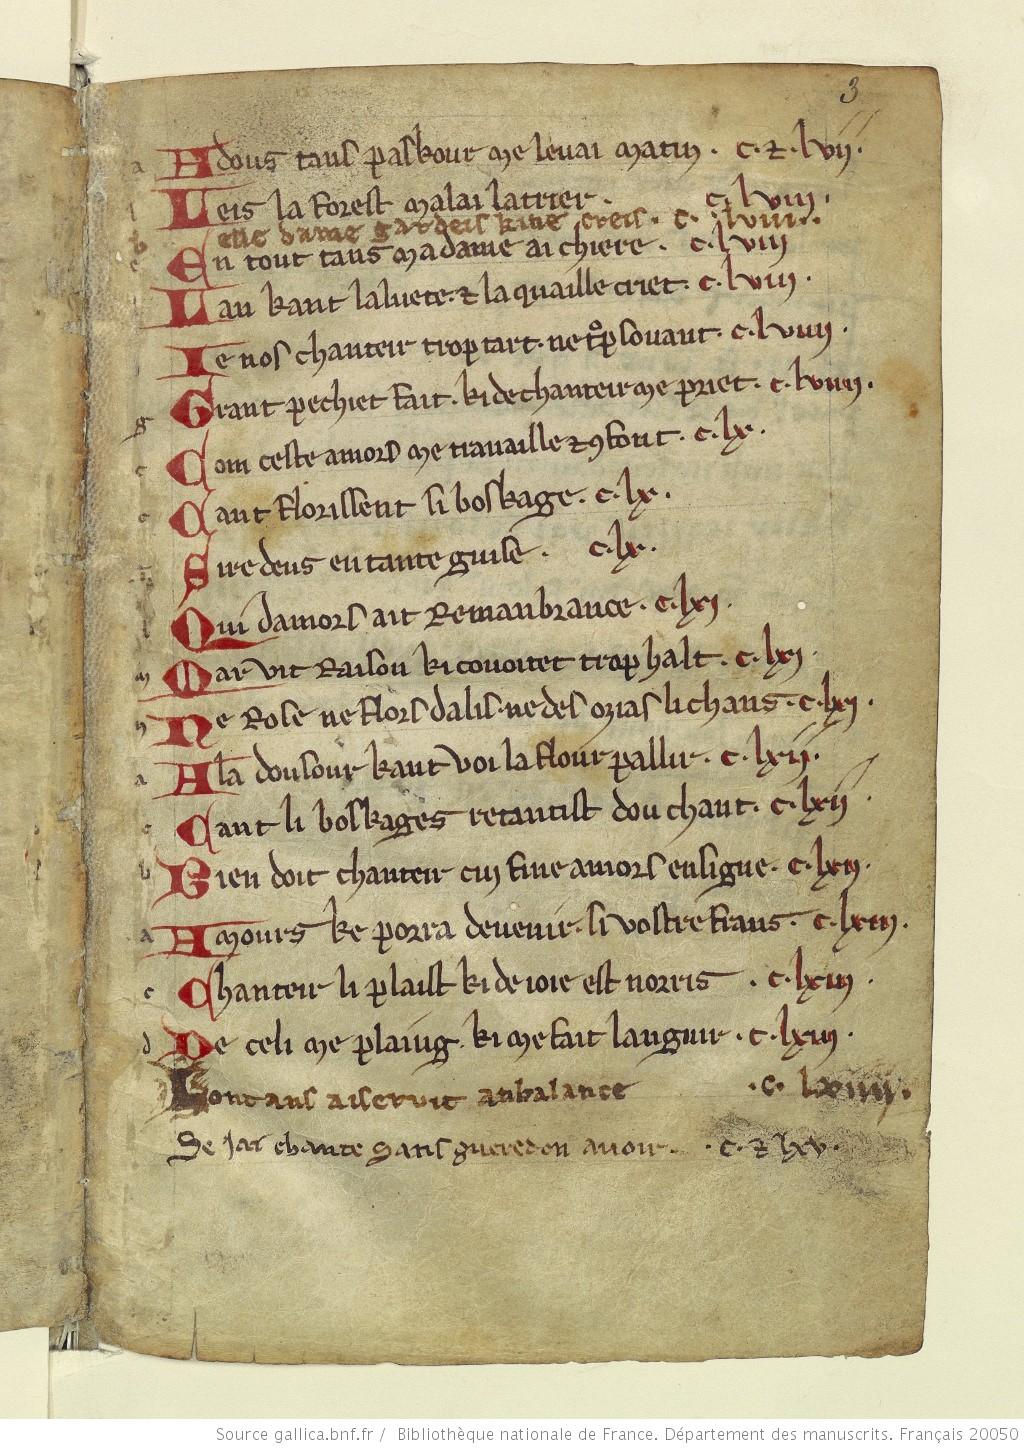 3
a Adous tans paskour me levai matin . c . ⁊ . lvii .
l Leis la forest malai latrier . c . lviii .
b elle dame gardeis kine creis . c . lviii .
e En tout tans ma dame ai chiere . c . lviii
Lan kant laluete . ⁊ la quaille criet . c . lviii .
Ie nos chanteir trop tart . ne sovant . c . lviiii .
g Grant pechiet fait . ki de chanteir me priet . c . lviiii .
c Com ceste amors me travaille ⁊ ꝯfont . c . lx .
c Cant florissent li boskage . c . lx .
Sire deus en tante guise . c . lx .
Qui damors ait remanbrance . c . lxi .
m Mar vit raison ki covoitet trop halt . c . lxi .
n Ne rose ne flors dalis . ne des ozias li chans . c . lxi .
a A la dousour kant voi la flour pallir . c . lxii .
c Cant li boskages retantist dou chant . c . lxii .
b Bien doit chanteir cui fine amors ensigne . c . lxii .
a Amours ke porra devenir . li vostre frans . c . lxiii .
c Chanteir li plaist ki de ioie est norris . c . lxiii .
d De celi me plaing . ki me fait languir . c . lxiii .
Lontans ai servit anbalance . c . lxiiii .
Se jai chante sans guereden avoir . . c . ⁊ lxv .
Source gallica.bnf.fr / Bibliothèque nationale de France. Département des manuscrits. Français 20050